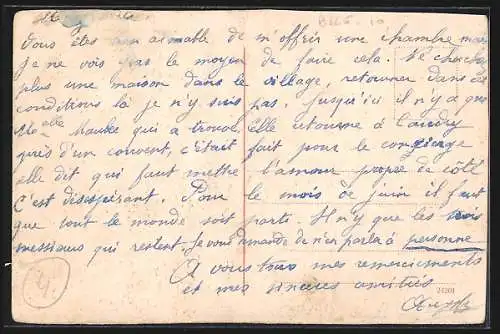 Vous êtes bien aimable de m'offrir une chambre mais
je ne vois pas le moyen de faire cela. Je cherche
plus une maison dans le village, retourner dans ces
conditions là je n'y suis pas. Jusqu'ici il n'y a que
elle
Maubée qui a trouvé, elle retourne à
près d'un couvent, c'était fait pour le
elle dit qui faut mettre l'amour propre de côté
C'est désespérant. Pour le mois de juin il faut
que tout le monde soit parti. Il n'y que les trois
messieurs qui restent. Je vous demande de n'en parler à personne
A vous tous mes remerciements
et mes sincères amitiés
4.
24201